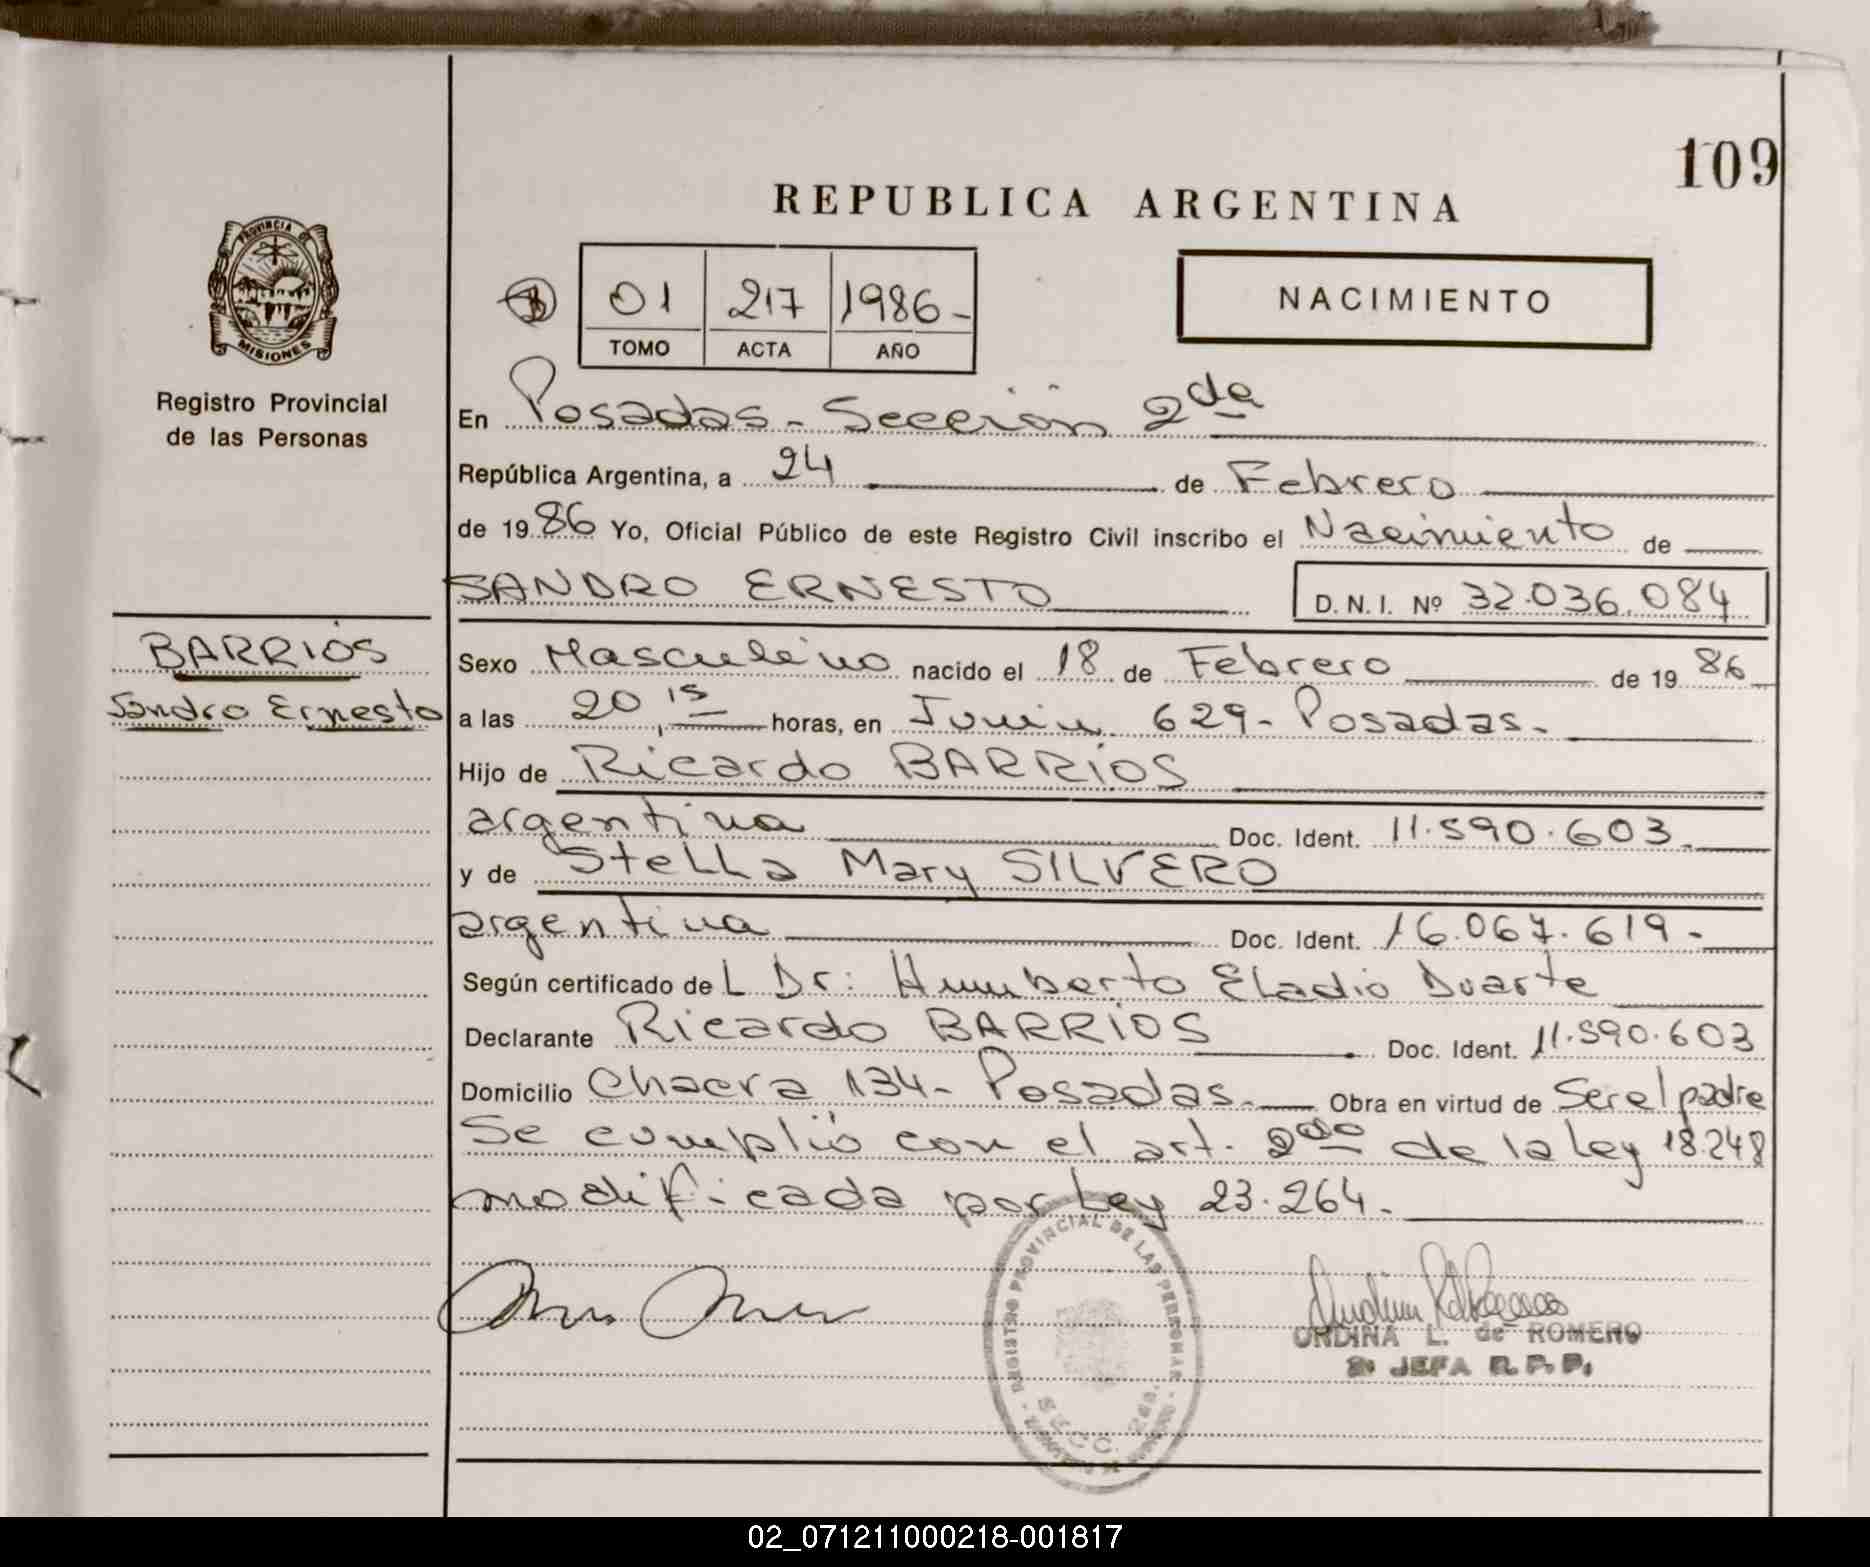 109
REPUBLICA ARGENTINA
PROVINCIA DE
MISIONES
Registro Provincial
de las Personas
01 217 1986-
TOMO ACTA AÑO
NACIMIENTO
En Posadas - Sección 2da
República Argentina, a 24 de Febrero
de 1986 Yo, Oficial Público de este Registro Civil inscribo el Nacimiento de
SANDRO ERNESTO D. N. I. Nº 32.036.084
BARRIOS
Sandro Ernesto
Sexo Masculino nacido el 18 de Febrero de 1986
a las 20,15 horas, en Junin 629- Posadas.
Hijo de Ricardo BARRIOS
argentina Doc. Ident. 11.590.603.
y de Stella Mary SILVERO
argentina Doc. Ident. 16.067.619-
Según certificado de L Dr: Humberto Eladio Duarte
Declarante Ricardo BARRIOS Doc. Ident. 11.590.603
Domicilio Chacra 134- Posadas. Obra en virtud de Ser el padre
Se cumplió con el art. 2do de la Ley 18.248
modificada por Ley 23.264.
REGISTRO PROVINCIAL DE LAS PERSONAS
SECC. 2da.
ORDINA L. de ROMERO
2a JEFA R. P. P.
02_071211000218-001817